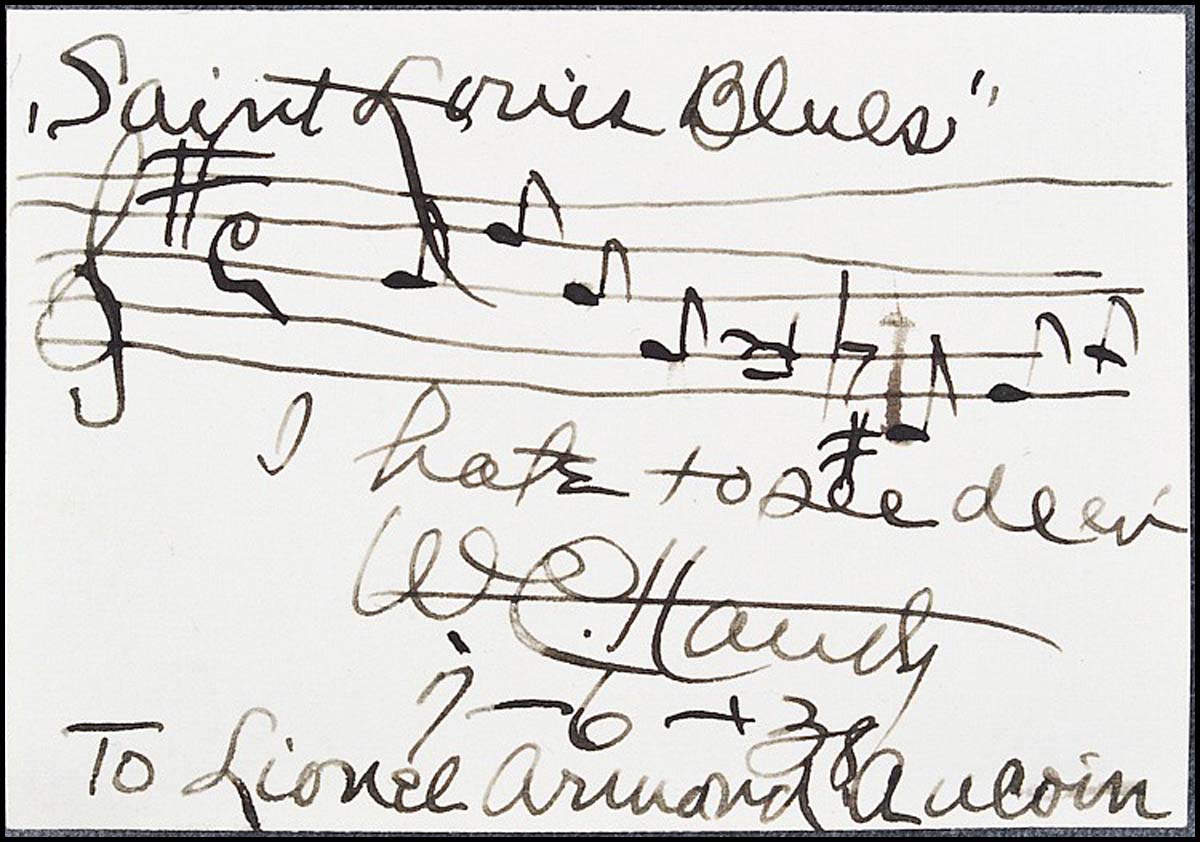 "Saint Louis Blues"
I hate to see de ev'
W. C. Handy
7-6-38
To Lionel Armond Aucoin